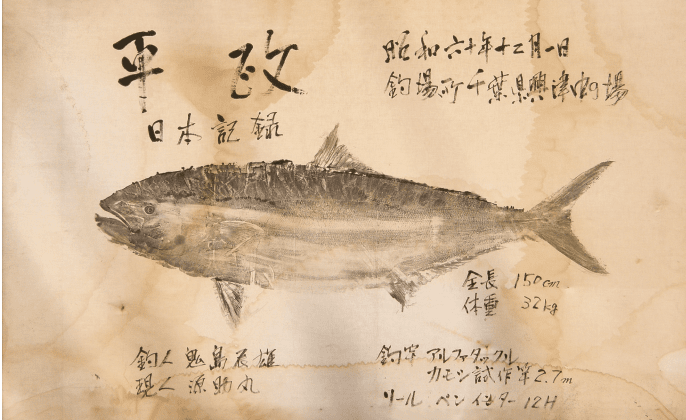 平政
日本記録
昭和六十年十二月一日
釣場所千葉県興津沖の場
全長 150cm
体重 32kg
釣人 鬼島辰雄
現人 源助丸
釣竿 アルファタックル
カモシ試作竿2.7m
リール ペン インター 12H